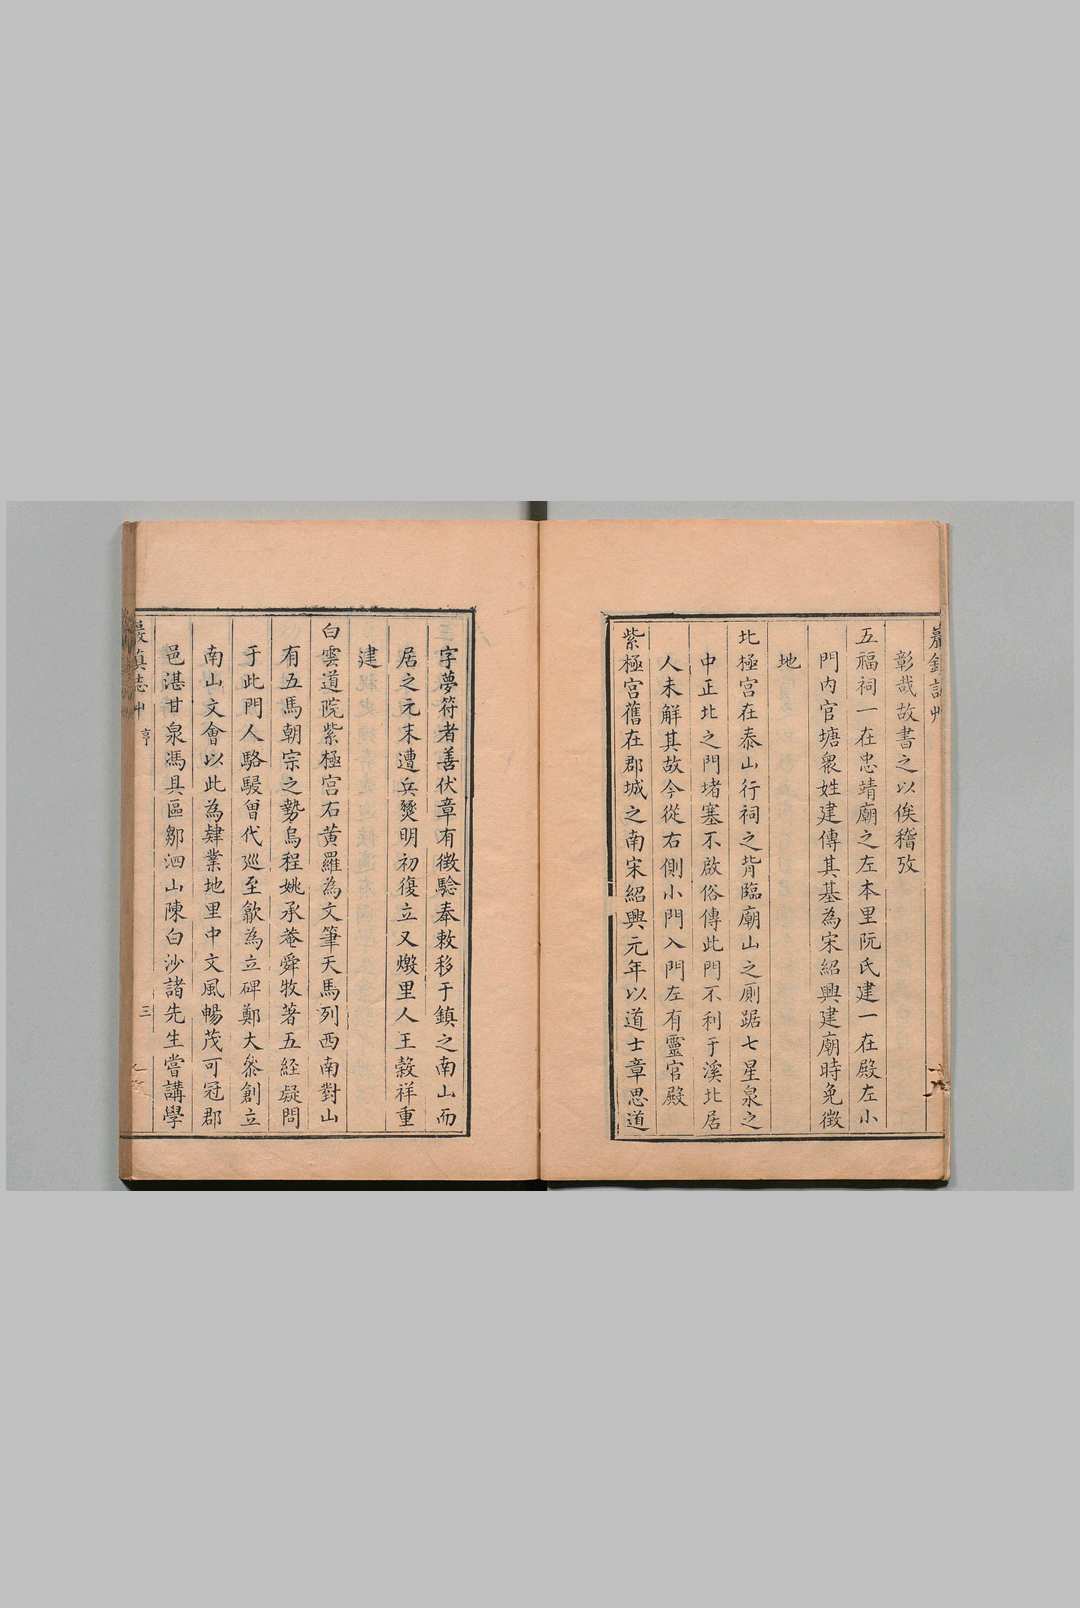 巖鎮志艸
彰哉故書之以俟稽攷
五福祠一在忠靖廟之左本里阮氏建一在殿左小
門內官塘衆姓建傳其基為宋紹興建廟時免徵
地
北極宮在泰山行祠之背臨廟山之厠踞七星泉之
中正北之門堵塞不啟俗傳此門不利于溪北居
人未解其故今從右側小門入門左有靈官殿
紫極宮舊在郡城之南宋紹興元年以道士章思道
三字夢符者善伏章有徴驗奉敕移于鎮之南山而
居之元末遭兵燹明初復立又燬里人王榖祥重
建
白雲道院紫極宮右黃羅為文筆天馬列西南對山
有五馬朝宗之勢烏程姚承菴舜牧著五經疑問
于此門人駱駸曾代廵至歙為立碑鄭大叅創立
南山文會以此為肄業地里中文風暢茂可冠郡
邑湛甘泉馮具區鄒泗山陳白沙諸先生嘗講學
巖鎮志艸
亨
三